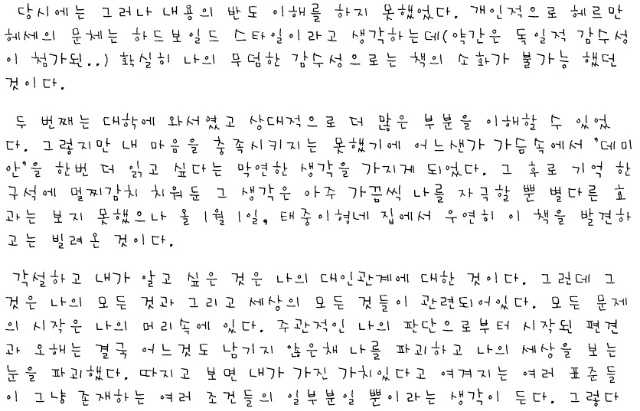 당시에는 그러나 내용의 반도 이해를 하지 못했었다. 개인적으로 헤르만
헤세의 문체는 하드보일드 스타일이라고 생각하는데(약간은 독일적 감수성
이 첨가된..) 확실히 나의 무덤한 감수성으로는 책의 소화가 불가능 했던
것이다.
두 번째는 대학에 와서였고 상대적으로 더 많은 부분을 이해할 수 있었
다. 그렇지만 내 마음을 충족시키지는 못했기에 어느샌가 가슴속에서 "데미
안"을 한번 더 읽고 싶다는 막연한 생각을 가지게 되었다. 그 후로 기억 한
구석에 멀찌감치 치워둔 그 생각은 아주 가끔씩 나를 자극할 뿐 별다른 효
과는 보지 못했으나 올 1월 1일, 태중이형네 집에서 우연히 이 책을 발견하
고는 빌려온 것이다.
각설하고 내가 알고 싶은 것은 나의 대인관계에 대한 것이다. 그런데 그
것은 나의 모든 것과 그리고 세상의 모든 것들이 관련되어있다. 모든 문제
의 시작은 나의 머리속에 있다. 주관적인 나의 판단으로부터 시작된 편견
과 오해는 결국 어느것도 남기지 않은채 나를 파괴하고 나의 세상을 보는
눈을 파괴했다. 따지고 보면 내가 가진 가치있다고 여겨지는 여러 표준들
이 그냥 존재하는 여러 조건들의 일부분일 뿐이라는 생각이 든다. 그렇다